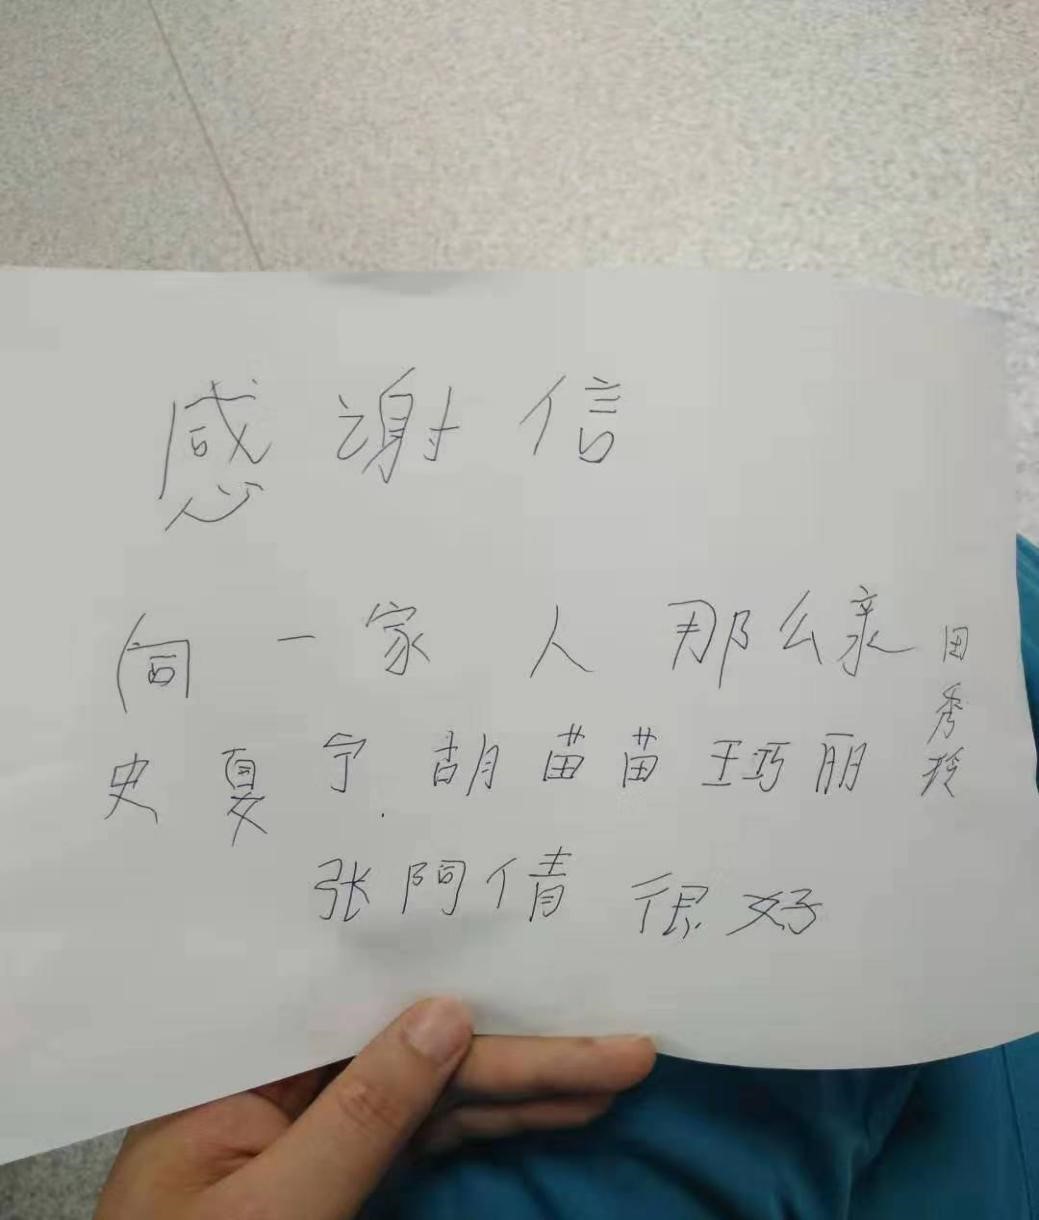 感谢信
向一家人那么亲
史夏宁.胡苗苗王巧丽
张阿倩 很好
田秀玲